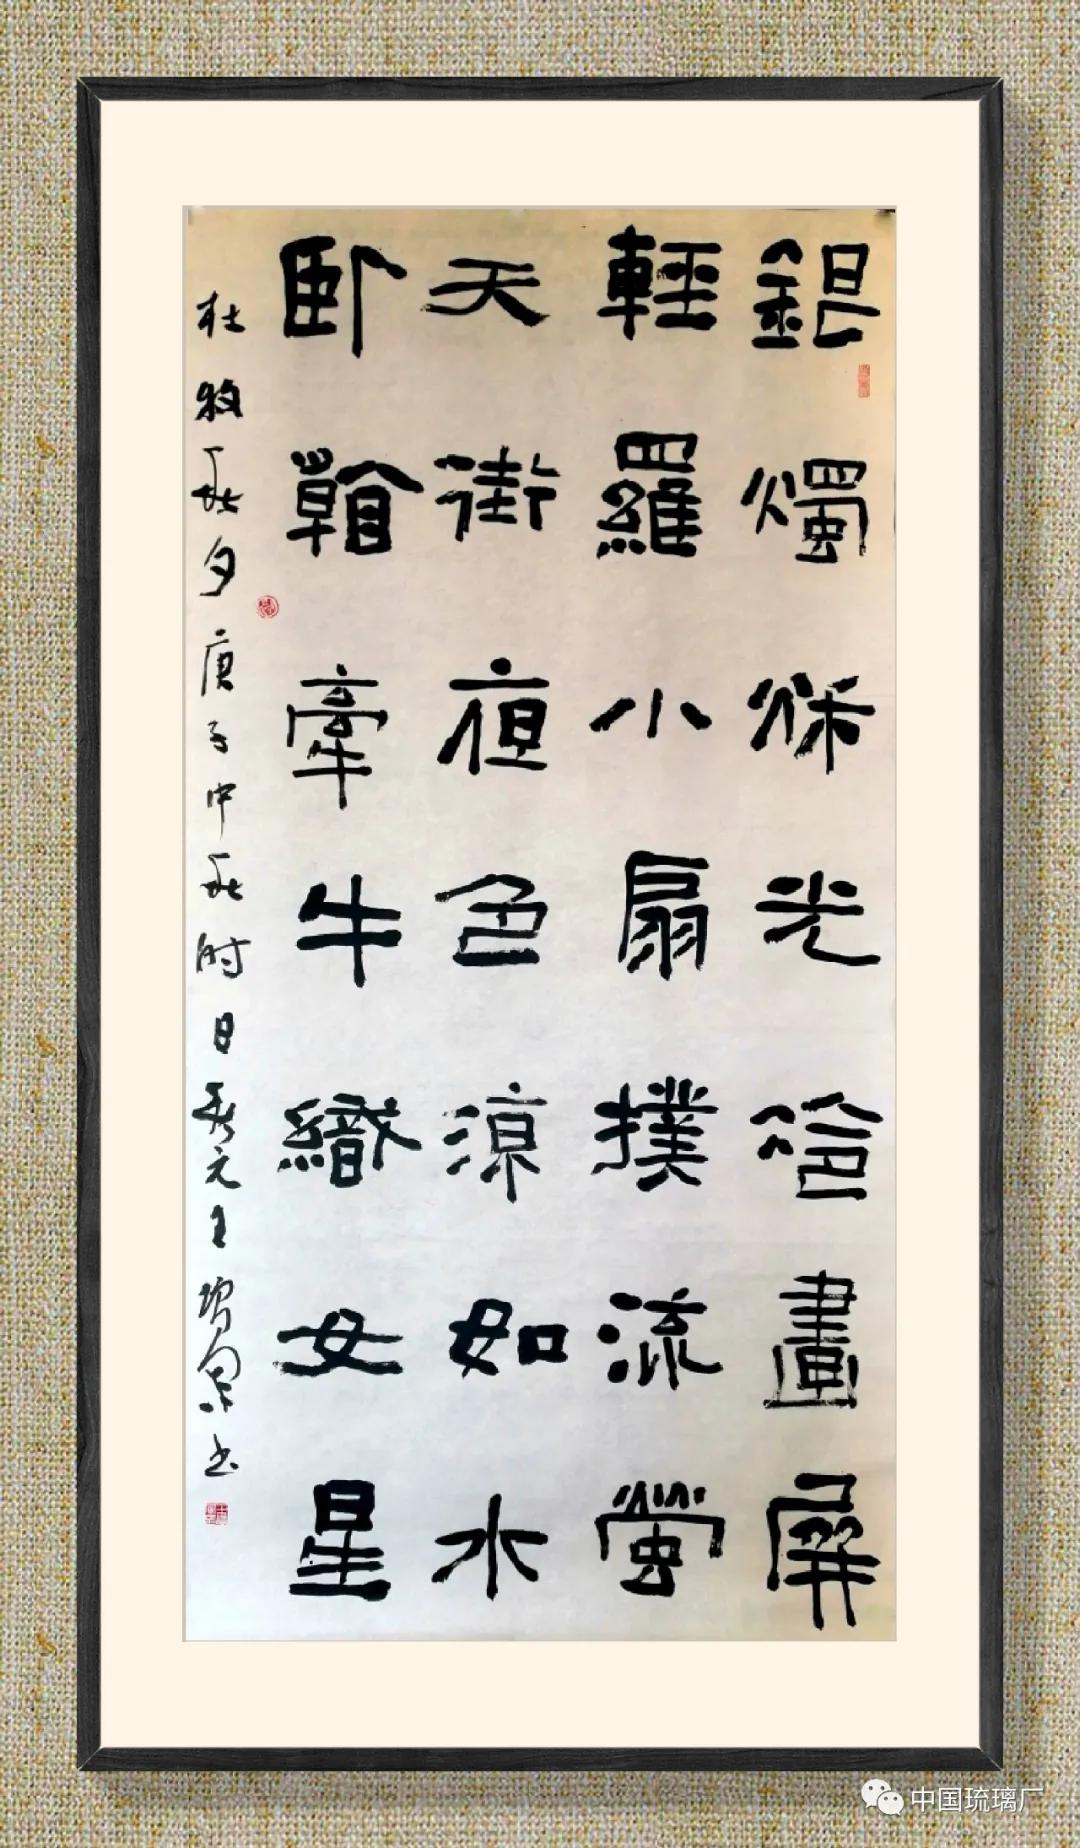 銀燭秌光冷畫屏
輕羅小扇撲流螢
天街夜色涼如水
臥看牽牛織女星
杜牧秋夕庚子中秋时日王书
中国琉璃厂